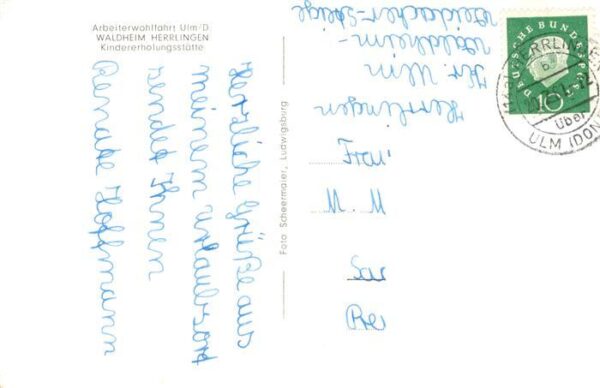 Arbeiterwohlfahrt Ulm/D.
WALDHEIM HERRLINGEN
Kindererholungsstätte
Herzliche Grüße aus
meinem Urlaubsort
sendet Ihnen
Renate Hoffmann
Foto Scheermaier, Ludwigsburg
Herrlingen
Kr. Ulm
Waldheim-
Weidacher-Steige
DEUTSCHE BUNDESPOST
10
HERRLINGEN
über
ULM (DON
Frau